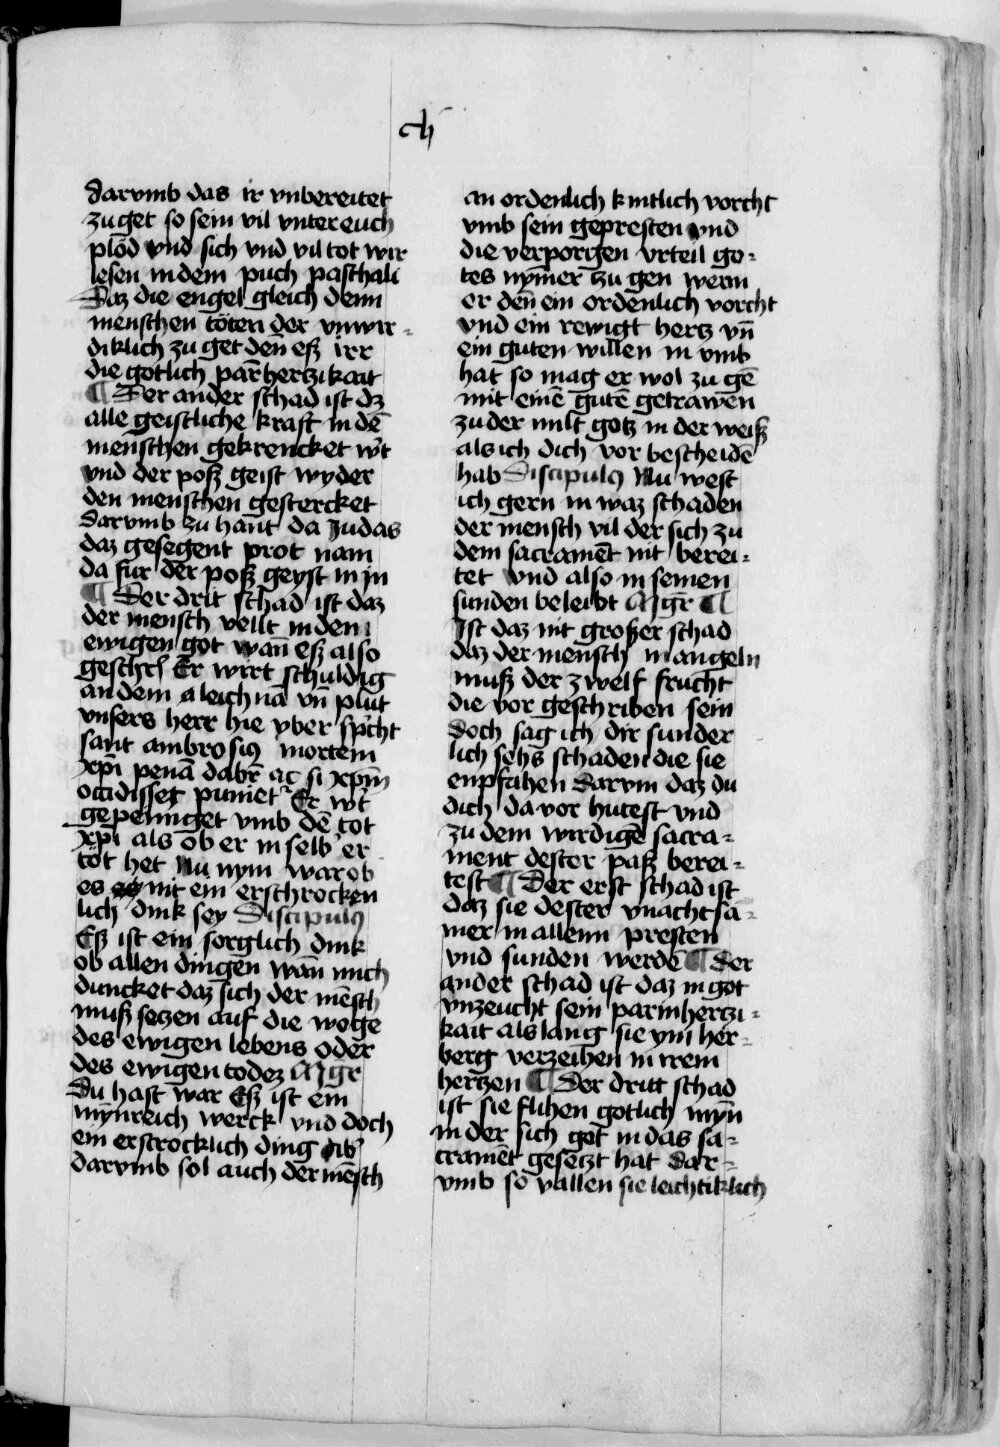 cli
darvmb das ir vnbereitet
zu get so sein vil vnter euch
plöd vnd sich vnd vil tot wir
lesen in dem puch paschali
Daz die engel gleich denn
menschen töten der vnwir-
diklich zu get den eß irr
die gotlich parhertzikait
¶ Der ander schad ist dz
alle geistliche kraft in dē
menschen gekrencket wt
vnd der poß geist wyder
den menschen gestercket
darvmb zu hant da Judas
daz gesegent prot nam
da fur der poß geyst in jn
¶ Der drit schad ist daz
der mensch vellt in den
ewigen got wan eß also
Er wirt schuldig
an dem leichnā vn̄ plut
vnsers herr hie vber spcht
sant ambrosiꝰ mortem
xpi penā dabr̄ ac si xpm̄
occidisset puniet Er wt
gepeiniget vmb dē tot
xpi als ob er in selb er
töt het Nu nym war ob
es nit ein erschrocken
lich dink sey Discipulꝰ
Eß ist ein sorglich dink
ob allen dingen wān mich
duncket daz sich der mēsch
muß setzen auf die wege
des ewigen lebens oder
des ewigen todez Mgr
Du hast war Eß ist ein
mynreich werck vnd doch
ein erscrocklich ding
darvmb sol auch der mēsch
an ordenlich kintlich vorcht
vmb sein gepresten vnd
die verporgen vrteil go-
tes nym̄er zu gen wenn
er den̄ ein ordenlich vorcht
vnd ein rewigtt hertz vn̄
ein guten willen in vmb
hat so mag er wol zu gē
mit einē gutē getrawen
zu der milt gotz in der weiß
als ich dich vor bescheidē
hab Discipulꝰ Nu west
ich gern in waz schaden
der mensch vil der sich zu
dem sacramēt nit berei-
tet vnd also in seinen
sunden beleibt Mgr̄ ¶
Ist daz nit großer schad
daz der mensch mangeln
muß der zwelf frucht
die vor geschriben sein
doch sag ich dir sunder
lich sehs schaden die sie
enpfahen darvm daz du
dich da vor hutest vnd
zu dem wirdigē sacra-
ment dester paß berei-
test ¶ Der erst schad ist
daz sie dester vnachtsa-
mer in allenn presten
vnd sunden werdē ¶ Der
ander schad ist daz in got
vnzeucht sein parmhertzi-
kait als lang sie ym her-
berg verzeihen in irem
hertzen ¶ Der dritt schad
ist sie flihen gotlich myn̄
in der sich got in das sa-
cramēt gesetzt hat dar-
vmb so vallen sie leichtiklich